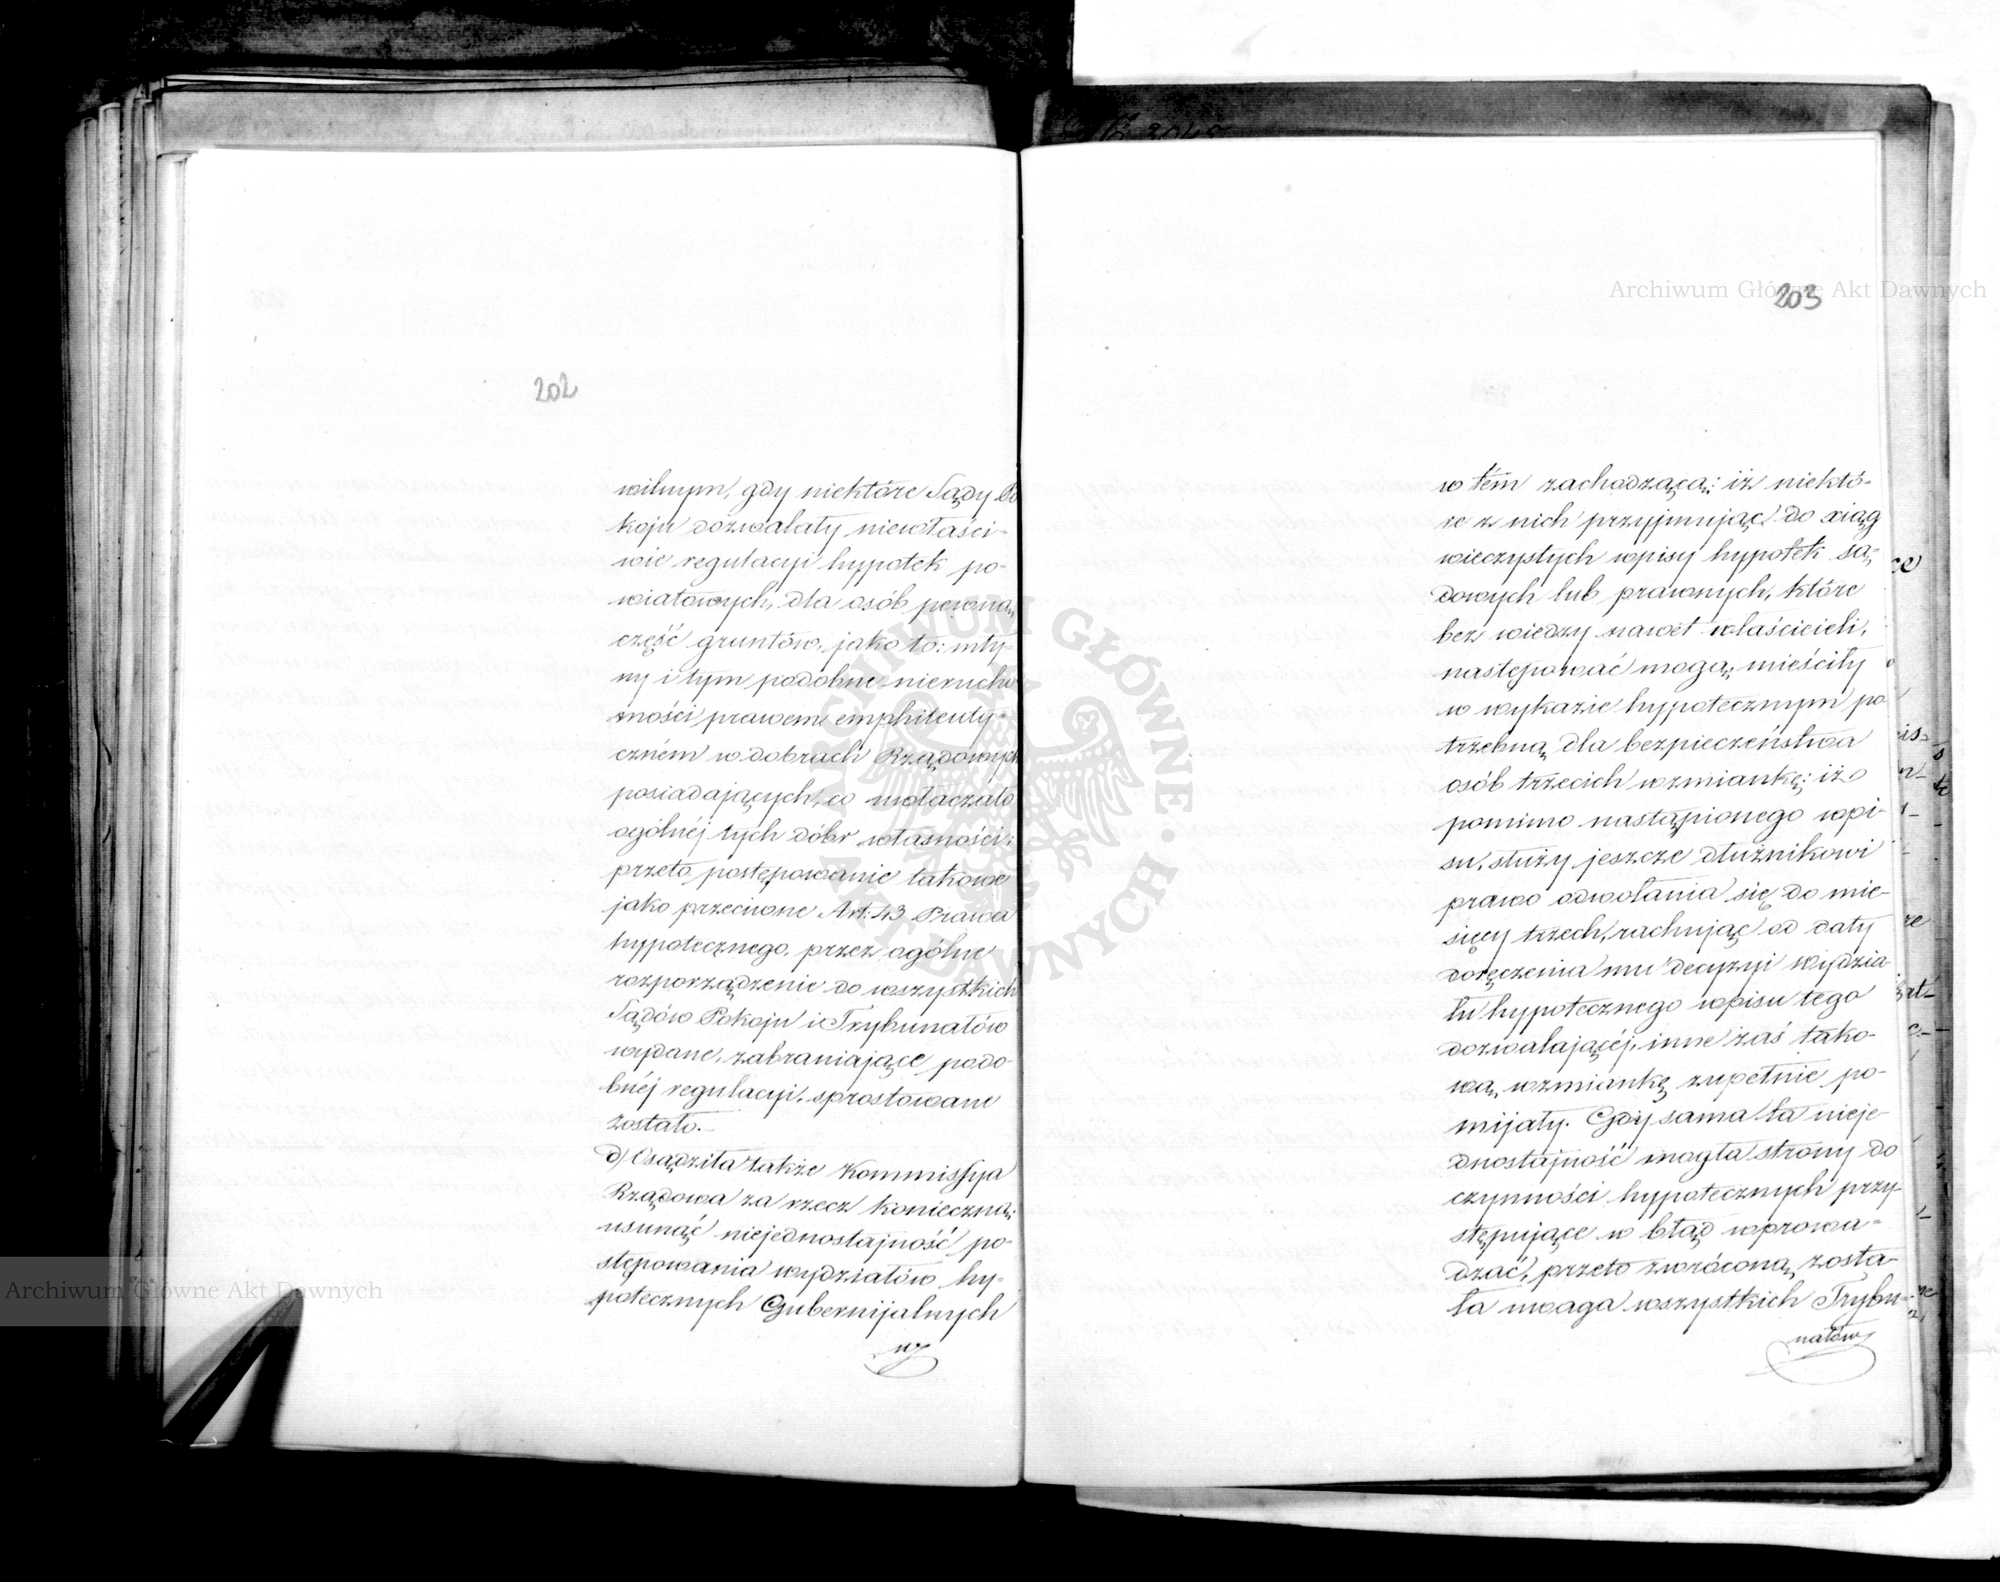 202
wilnym, gdy niektóre Sądy Po
koju dozwalały niewłaści-
wie regulacyi hypotek po-
wiatowych, dla osób pewną
część gruntów, jako to: mły-
ny i tym podobne nierucho
mości prawem emphiteuty-
czném w dobrach Rządowych
posiadających, co uwłaczało
ogólnéj tych dóbr własności;
przeto postępowanie takowe
jako przeciwne Art: 43 Prawa
hypotecznego, przez ogólne
rozporządzenie do wszystkich
Sądów Pokoju i Trybunałów
wydane, zabraniające podo-
bnéj regulacyi, sprostowane
zostało.-
d) Osądziła także Kommissya
Rządowa za rzecz konieczną;
usunąć niejednostajność po-
stępowania wydziałów hy-
potecznych Gubernijalnych
w
203
w tém zachodzącą; iż niektó-
re z nich przyjmując do xiąg
wieczystych wpisy hypotek są-
dowych lub prawnych, które
bez wiedzy nawet właścicieli,
następować mogą, mieściły
w wykazie hypotecznym po
trzebną dla bezpieczeństwa
osób trzecich wzmiankę; iż
pomimo nastąpionego wpi-
su, służy jeszcze dłużnikowi
prawo odwołania się do mie-
sięcy trzech, rachując od daty
doręczenia mu decyzyi Wydzia
łu hypotecznego wpisu tego
dozwalającéj, inne zaś tako-
wą wzmiankę zupełnie po-
mijały. Gdy sama ta nieje-
dnostajność mogła strony do
czynności hypotecznych przy-
stępujące w błąd wprowa-
dzać, przeto zwróconą zosta-
ła uwaga wszystkich Trybu-
nałów
Archiwum Główne Akt Dawnych
Archiwum Główne Akt Dawnych
ARCHIWUM GŁÓWNE · AKT DAWNYCH ·